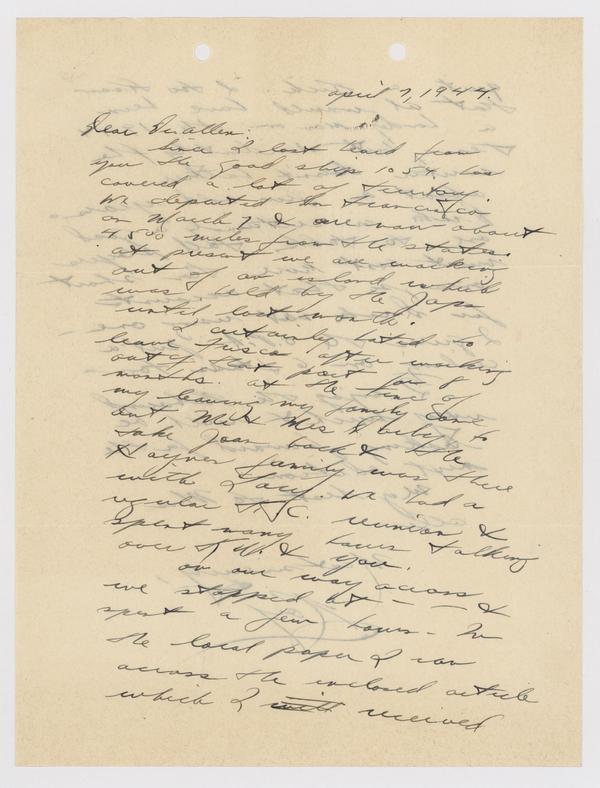 April 7, 1944.
Dear Dr. Allen:
Since I last heard from
you the good ship 1054 has
covered a lot of territory.
We departed San Francisco
on March 7 & are now about
4500 miles from the states.
At present we are working
out of an island which
was held by the Japs
until last month.
I certainly hated to
leave Frisco after working
out of that port for 8
months. At the time of
my leaving my family came
out, Mr & Mrs & baby to
take Joan back & the
Haynes family was there
with Lacy. We had a
regular S.T.C. reunion &
spent many hours talking
over &. You.
On our way across
we stopped at - - - &
spent a few hours - In
the local paper I ran
across the inclosed article
which I received